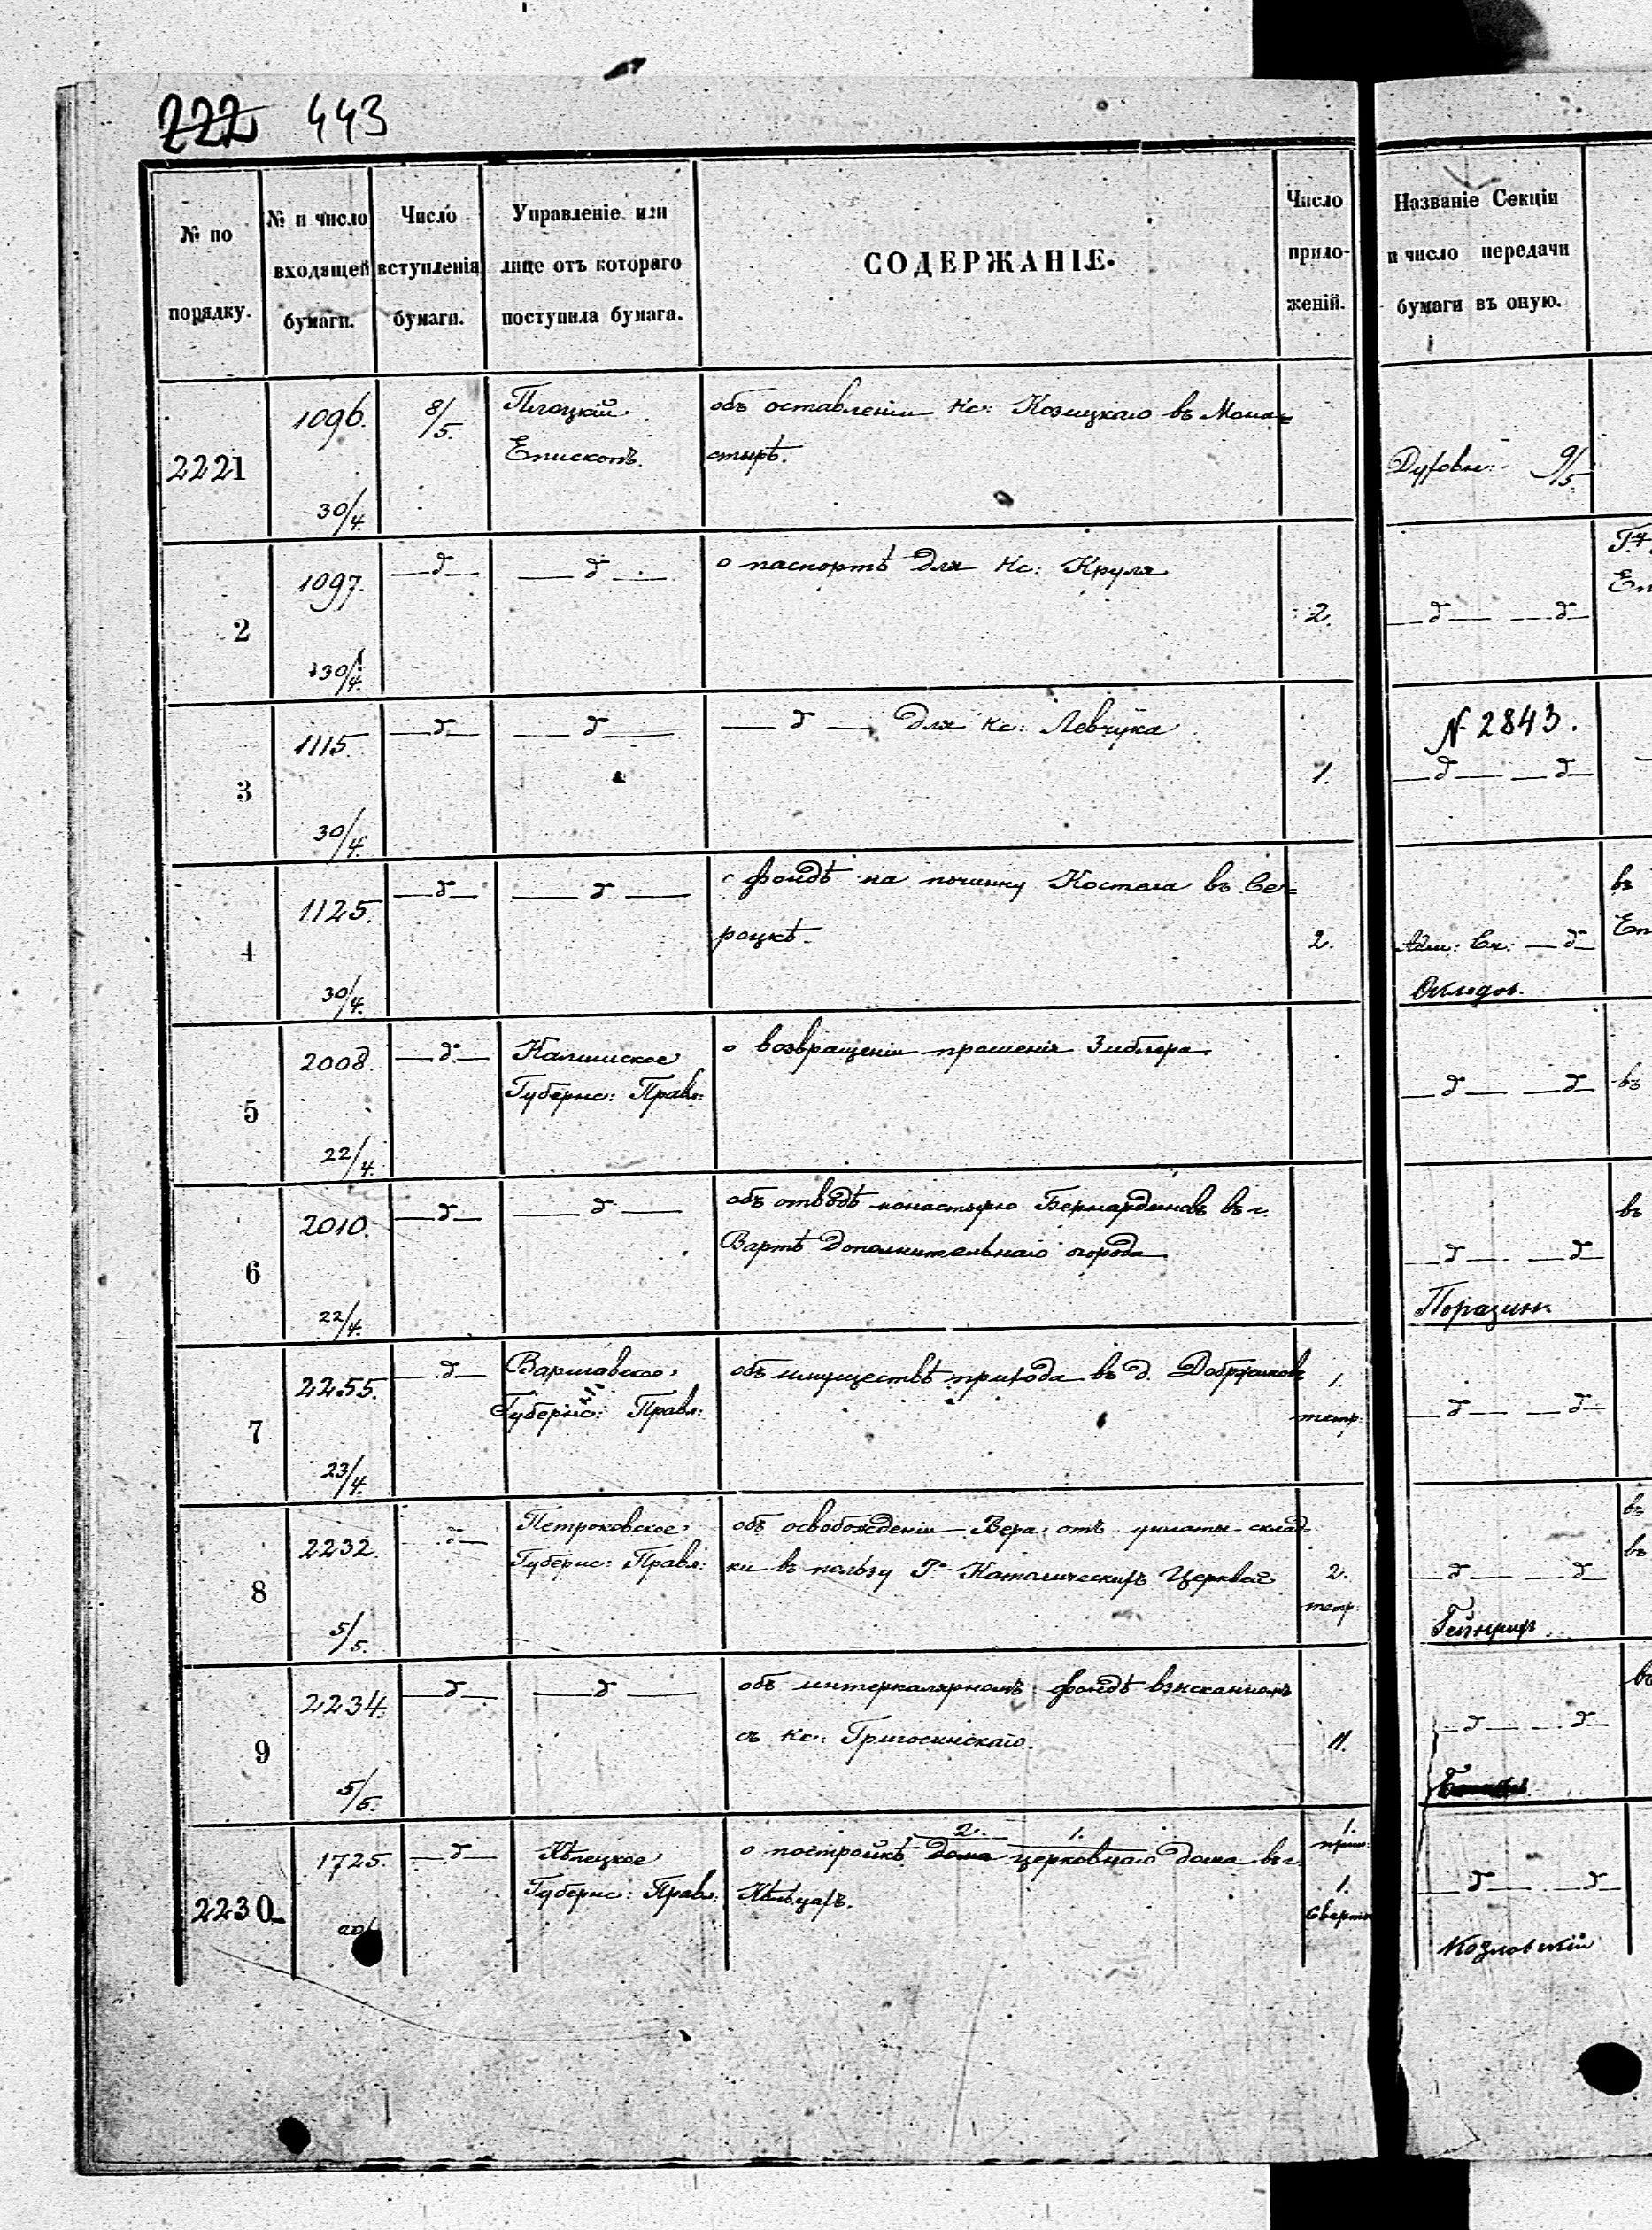 222 443
№ по порядку.
№ и число входящей бумаги.
Число вступленія бумаги.
Управленіе или лице отъ котораго поступила бумага.
СОДЕРЖАНІЕ.
Число приложеній.
Названіе Секціи и число передачи бумаги въ оную.
2221 1096. 30/4. 8/5. Плоцкій Епископъ.
объ оставленіи Кс: Козицкаго въ Мона=
стырѣ.
Духовн: 9/5
2 1097. 30/4. —д— —д—
о паспортѣ для Кс: Круля
2. —д— —д—
3 1115. 30/4. —д— —д—
—д— для Кс: Левчука
1. N 2843. —д— —д—
4 1125. 30/4. —д— —д—
о фондѣ на починку Костела въ Се=
роцкѣ.
2. Адм: Ск: —д—
5 2008. 22/4. —д— Калишское Губернс: Правл:
о возвращеніи прошенія Зиблера
—д— —д— въ
6 2010. 22/4. —д— —д—
объ отводѣ монастырю Бернардиновъ въ г.
Вартѣ дополнительнаго огорода
—д— —д— въ
7 2255. 23/4. —д— Варшавское Губернс: Правл:
объ имуществѣ прихода въ д.
1. —д— —д—
8 2232. 5/5. —д— Петроковское Губернс: Правл:
объ освобожденіи Вера отъ уплаты склад=
ки въ пользу Р.- Католическихъ Церквей
2. —д— —д— въ
въ
Гейнрих
9 2234. 5/5. —д— —д—
объ интеркалярномъ фондѣ взысканномъ
съ кс:
11. —д— —д—
2230 1725. —д— Кѣлецкое Губернс: Правл:
2. 1.
о постройкѣ дома церковнаго дома въ г.
Кѣльцахъ.
1. прил:
1. Сверто
—д— —д—
Козловскій